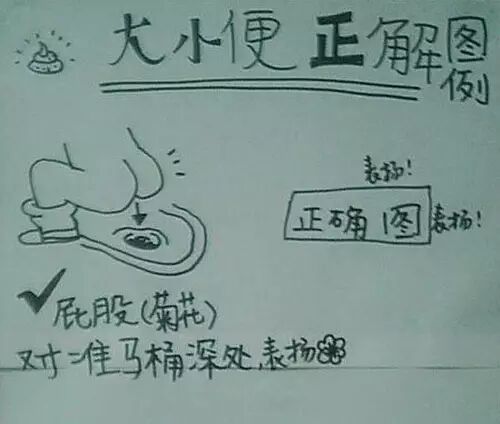 大小便正解图例
表扬!
正确图 表扬!
屁股(菊花)
对准马桶深处,表扬